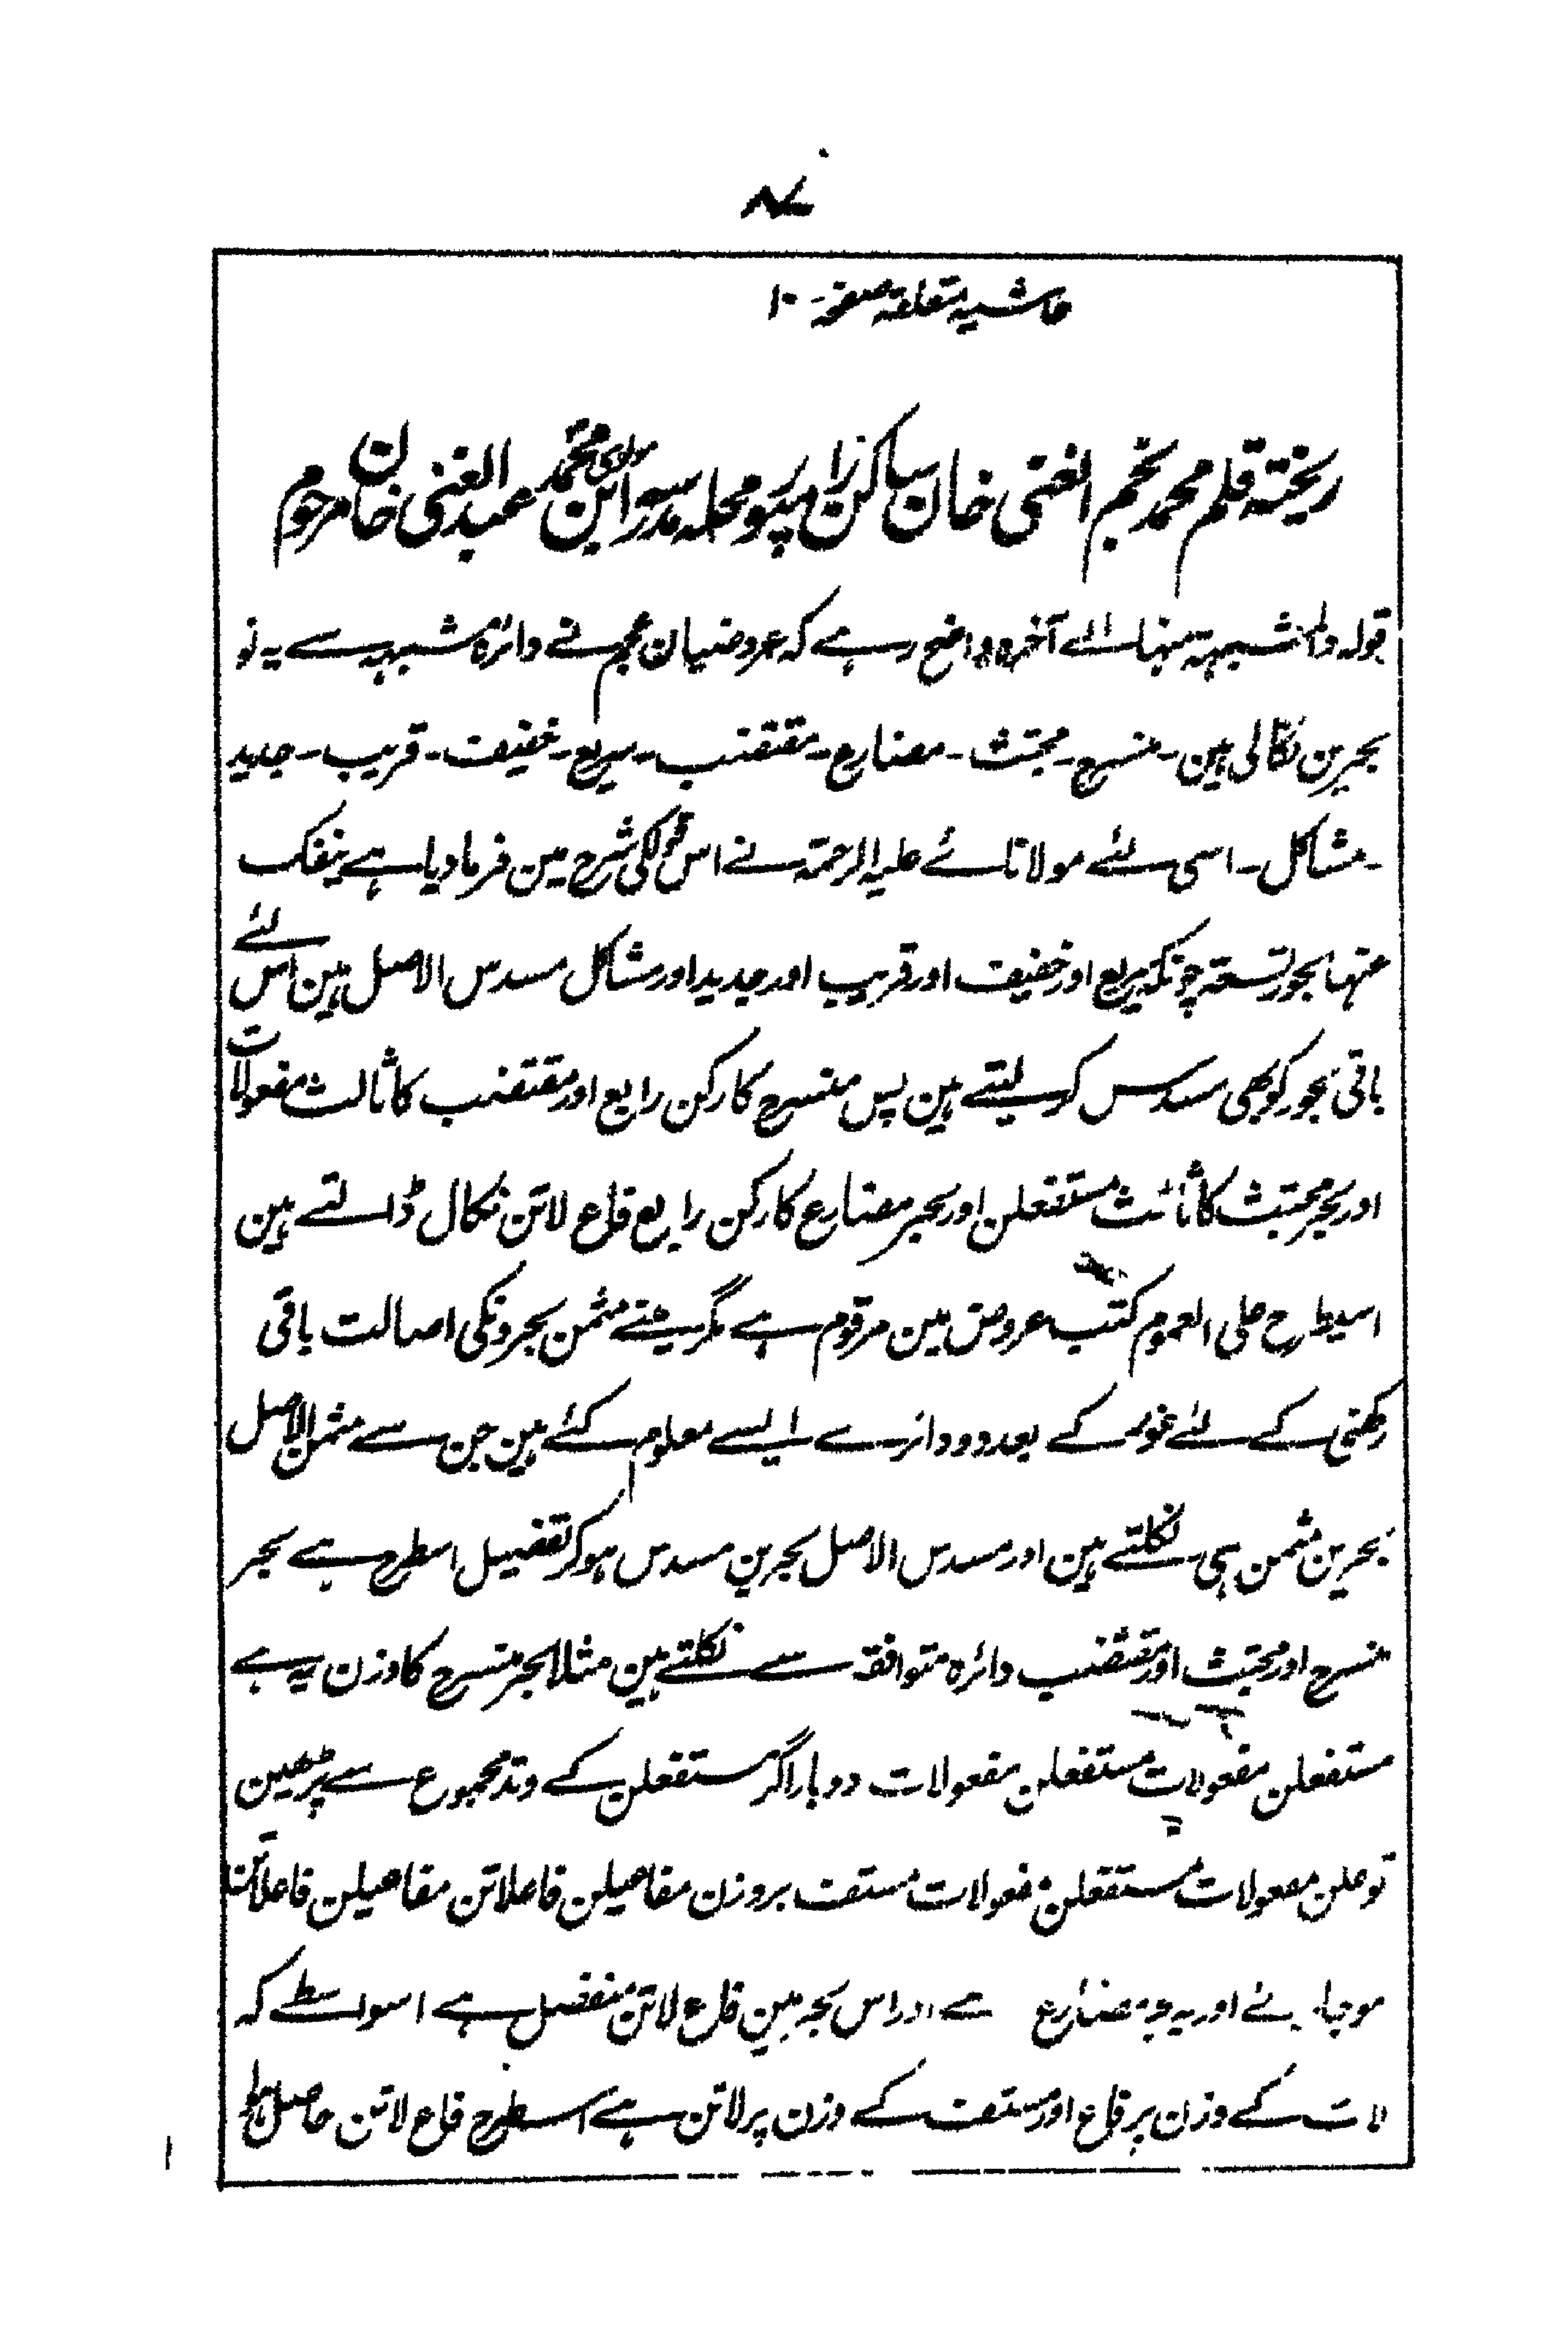 ۸۷
حاشیہ متعلقہ صفحہ ۱۰
ریختہ قلم محمد نجم الغنی خان ساکن رامپور محلہ مدرسہ ابن مولوی محمد عبد الغنی خان مرحوم
قولہ منہا الے آخرہ واضح رہے کہ عروضیان عجم نے دائرۂ مشبہہ سے یہ نو
بحرین نکالی ہین - منسرح - مجتث - مضارع - مقتضب - سریع - خفیف - قریب - جدید
- مشاکل - اسی لئے مولانائے علیہ الرحمۃ نے اس قول کی شرح مین فرما دیا ہے ینفک
منہا بحور تسعۃ چونکہ سریع اور خفیف اور قریب اور جدید اور مشاکل مسدس الاصل ہین اس لئے
باقی بحور کو بھی مسدس کر لیتے ہین پس منسرح کا رکن رابع اور مقتضب کا ثالث مفعولات
اور بحر مجتث کا ثالث مستفعلن اور بحر مضارع کا رکن رابع فاع لاتن نکال ڈالتے ہین
اسیطرح علی العموم کتب عروض مین مرقوم ہے مگر مینے مثمن بحرونکی اصالت باقی
رکھنی کے لئے غور کے بعد دو دائرے ایسے معلوم کئے ہین جن سے مثمن الاصل
بحرین مثمن ہی نکلتے ہین اور مسدس الاصل بحرین مسدس ہوکر تفصیل اسطرح ہے بحر
منسرح اور مجتث اور مقتضب دائرہ متوافقہ سے نکلتے ہین مثلا بحر منسرح کا وزن یہ ہے
مستفعلن مفعولات مستفعلن مفعولات دوبار اگر مستفعلن کے وتد مجموع سے پڑھین
تو علن مفعولات مستفعلن مفعولات مستف بروزن مفاعیلن فاعلاتن مفاعیلن فاعلاتن
ہوجائے اور یہ بحر مضارع ہے اور اس بحر مین فاع لاتن منفصل ہے اسواسطے کہ
لات کے وزن پر فاع اور مستف کے وزن پر لاتن ہے اسطرح فاع لاتن حاصل